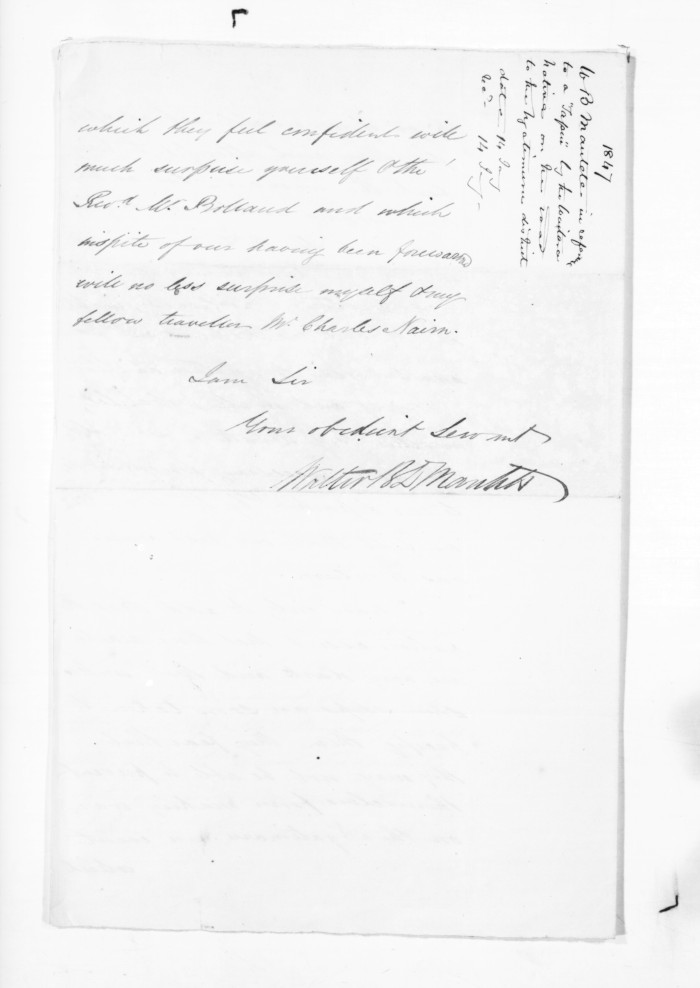 which they feel confident will
much surprise yourself & the
Revd. Mr. Bolland and which
inspite of our having been forewarned
will no less surprise myself & my
fellow traveller Mr. Charles Nairn.
I am Sir
Your obedient Servant
Walter B D Mantell
1847
W B Mantell in
to a "Tapu" by the
natives on the road
to the district
date 14 Jany
14 Jany